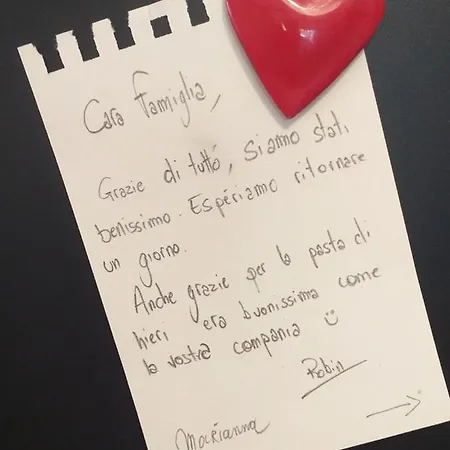 Cara Famiglia,
Grazie di tuttó, Siamo stati
benissimo. Espériamo ritornare
un giorno.
Anche grazie per la pasta di
hieri era buonissima come
la vostra compania :)
Robin
Marianna
→